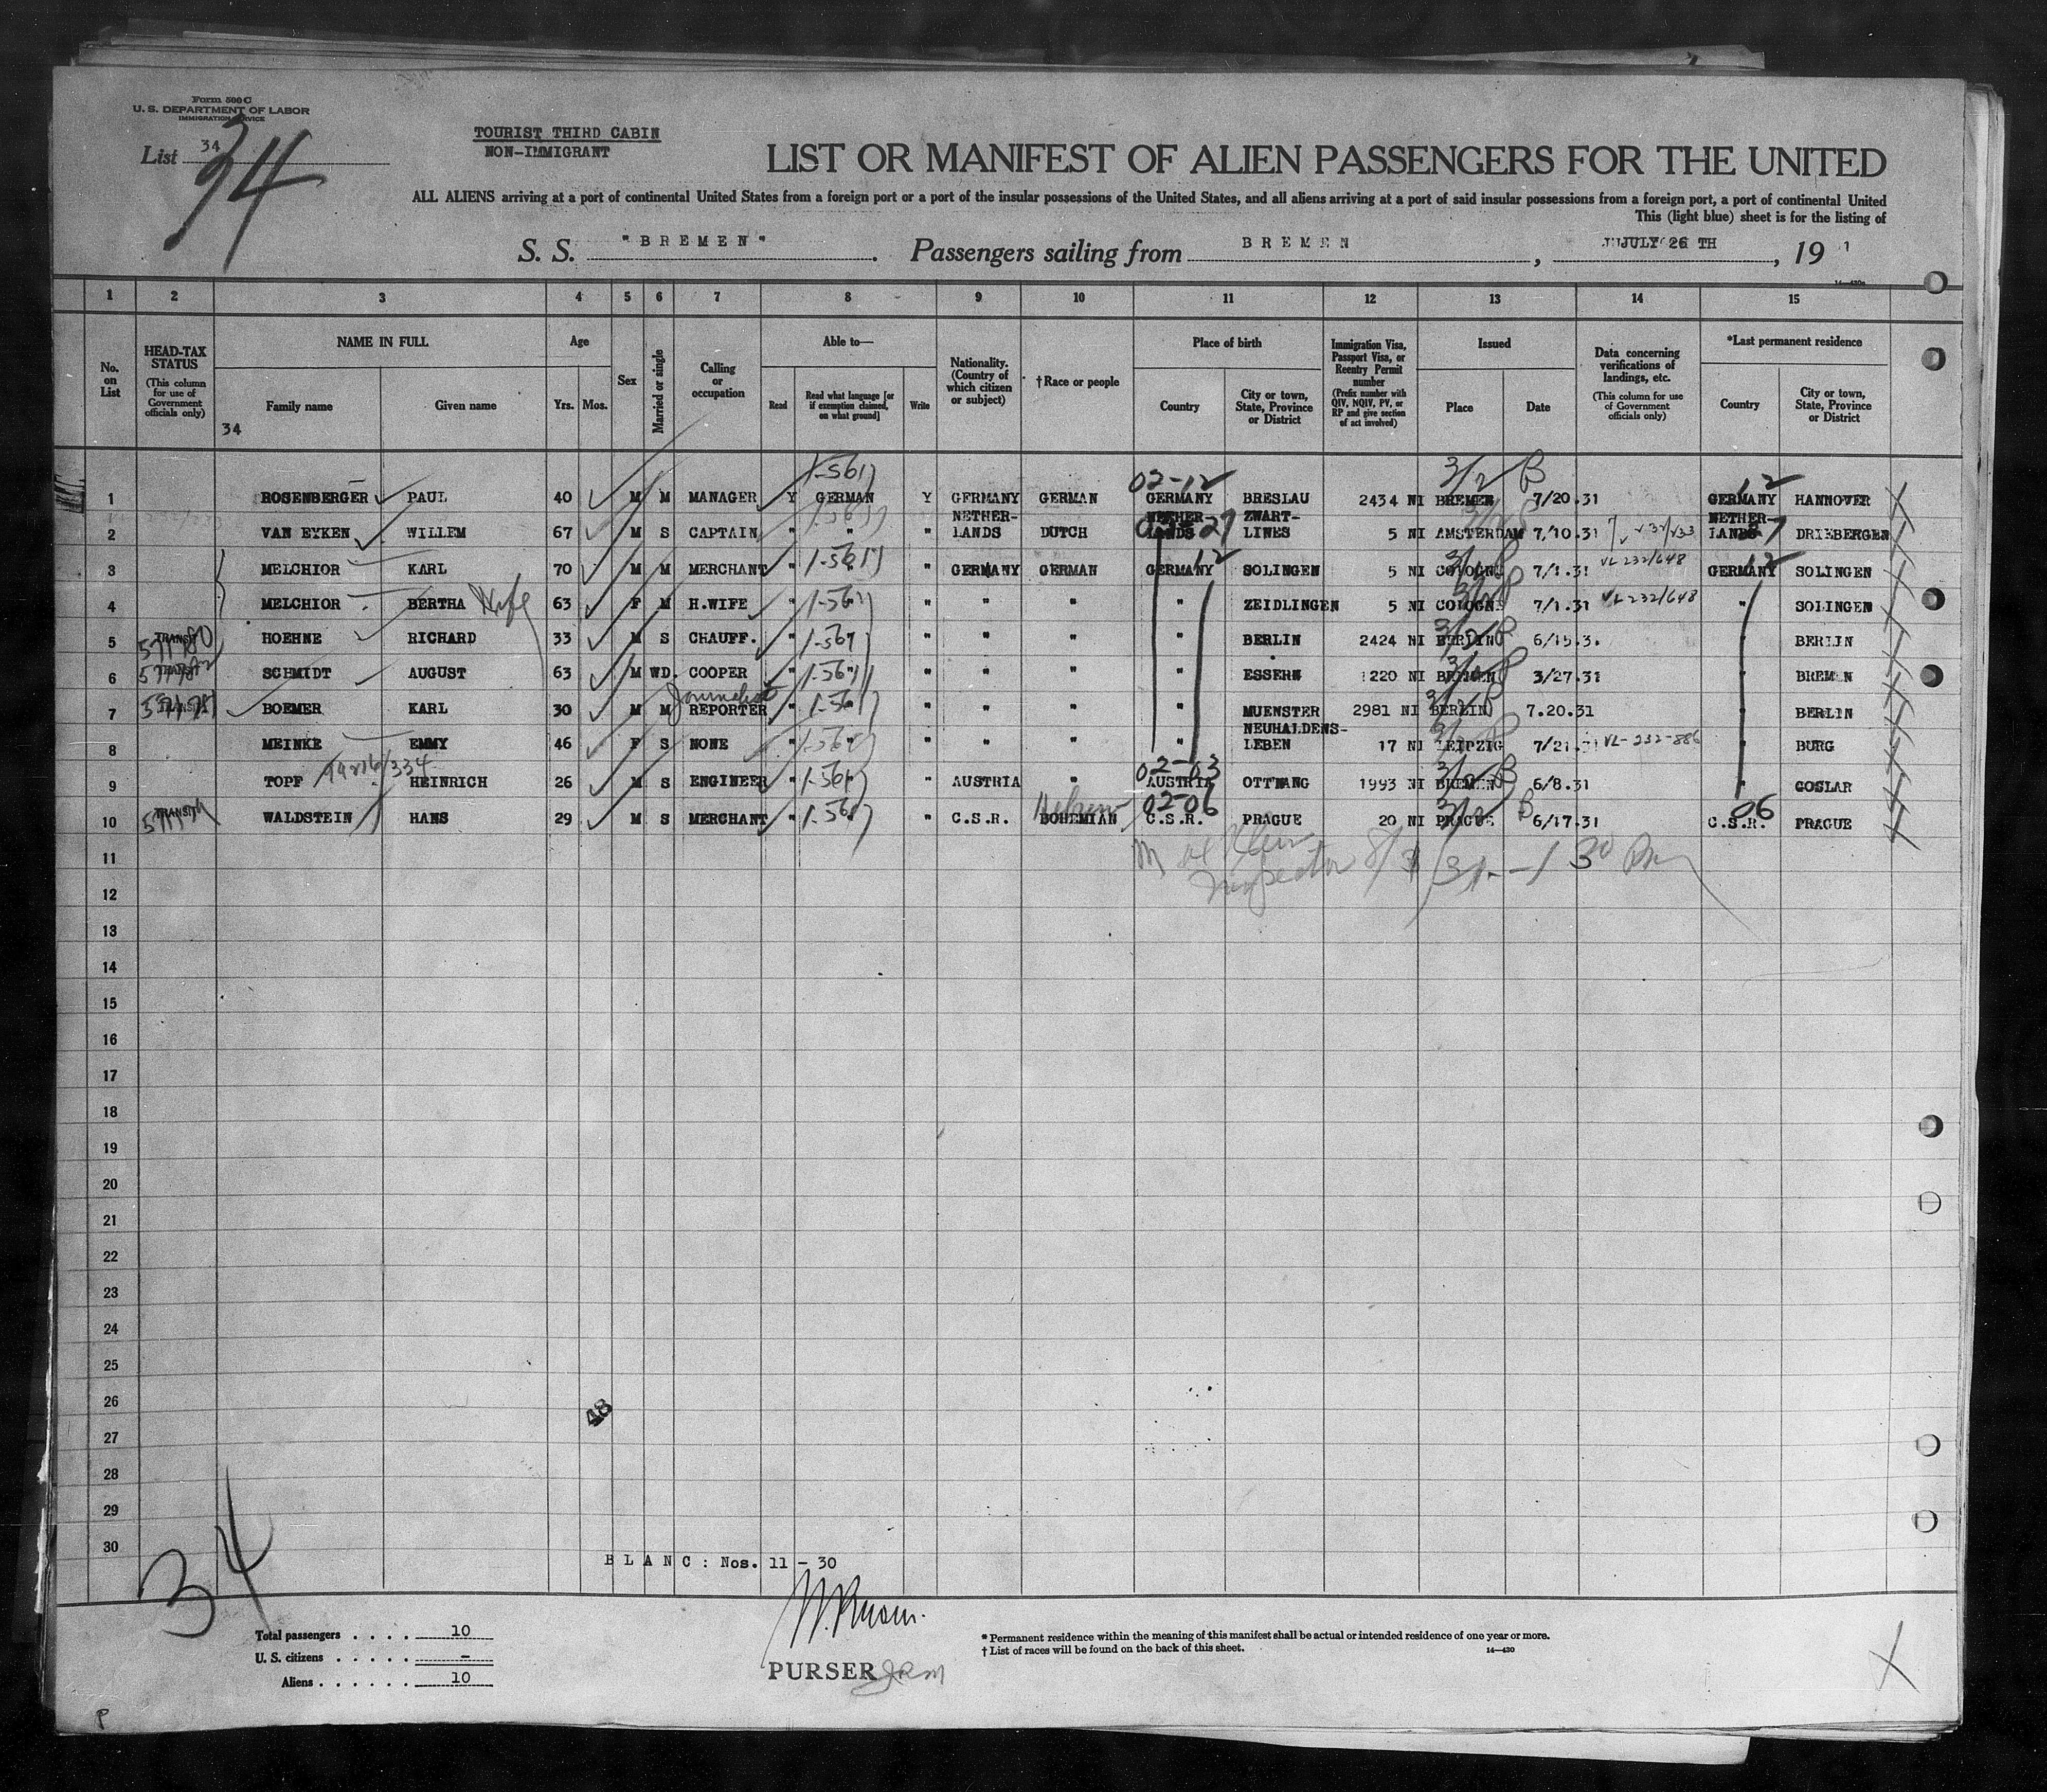 Form 500 C
U. S. DEPARTMENT OF LABOR
IMMIGRATION SERVICE
List 34
34
TOURIST THIRD CABIN
NON-IMMIGRANT
LIST OR MANIFEST OF ALIEN PASSENGERS FOR THE UNITED
ALL ALIENS arriving at a port of continental United States from a foreign port or a port of the insular possessions of the United States, and all aliens arriving at a port of said insular possessions from a foreign port, a port of continental United
This (light blue) sheet is for the listing of
S. S. "BREMEN". Passengers sailing from BREMEN, JULY 26 TH, 19 1
14—430a
1 2 3 4 5 6 7 8 9 10 11 12 13 14 15
No. on List
HEAD-TAX STATUS (This column for use of Government officials only)
NAME IN FULL
Family name Given name
34
Age
Yrs. Mos.
Sex
Married or single
Calling or occupation
Able to—
Read Read what language [or if exemption claimed, on what ground] Write
Nationality. (Country of which citizen or subject)
†Race or people
Place of birth
Country City or town, State, Province or District
Immigration Visa, Passport Visa, or Reentry Permit number (Prefix number with QIV, NQIV, PV, or RP and give section of act involved)
Issued
Place Date
Data concerning verifications of landings, etc. (This column for use of Government officials only)
*Last permanent residence
Country City or town, State, Province or District
02-12 3/2 B 12
1 ROSENBERGER PAUL 40 M M MANAGER Y GERMAN Y GERMANY GERMAN GERMANY BRESLAU 2434 NI BREMEN 7/20.31 GERMANY HANNOVER
2 VAN EYKEN WILLEM 67 M S CAPTAIN " " " NETHER-LANDS DUTCH NETHER-LANDS ZWART-LINES 5 NI AMSTERDAM 7/10.31 NETHER-LANDS DRIEBERGEN
3 MELCHIOR KARL 70 M M MERCHANT " " " GERMANY GERMAN GERMANY SOLINGEN 5 NI COLOGNE 7/1.31 VL 232/648 GERMANY SOLINGEN
4 MELCHIOR BERTHA Wife 63 F M H.WIFE " " " " " " ZEIDLINGEN 5 NI COLOGNE 7/1.31 VL 232/648 " SOLINGEN
5 TRANSIT HOEHNE RICHARD 33 M S CHAUFF. " " " " " BERLIN 2424 NI BERLIN 6/15.3. " BERLIN
6 TRANSIT SCHMIDT AUGUST 63 M WD. COOPER " " " " " ESSERN 1220 NI BREMEN 3/27.31 BREMEN
Journalist
7 TRANSIT BOEMER KARL 30 M M REPORTER " " " " " " MUENSTER 2981 NI BERLIN 7.20.31 BERLIN
8 MEINKE EMMY 46 F S NONE " " " " " " NEUHALDENS-LEBEN 17 NI LEIPZIG 7/21.31 VL-232-886 " BURG
02-03
9 TOPF HEINRICH 26 M S ENGINEER " " " AUSTRIA " AUSTRIA OTTWANG 1993 NI BREMEN 6/8.31 " GOSLAR
Hebrew 02-06 06
10 TRANSIT WALDSTEIN HANS 29 M S MERCHANT " " " C.S.R. BOHEMIAN C.S.R. PRAGUE 20 NI PRAGUE 6/17.31 C.S.R. PRAGUE
11
Inspector
12
13
14
15
16
17
18
19
20
21
22
23
24
25
26
48
27
28
29
30
34
BLANC: Nos. 11 - 30
Total passengers . . . . 10
U. S. citizens . . . . . -
Aliens . . . . . . 10
PURSER
* Permanent residence within the meaning of this manifest shall be actual or intended residence of one year or more.
† List of races will be found on the back of this sheet.
14—430
P